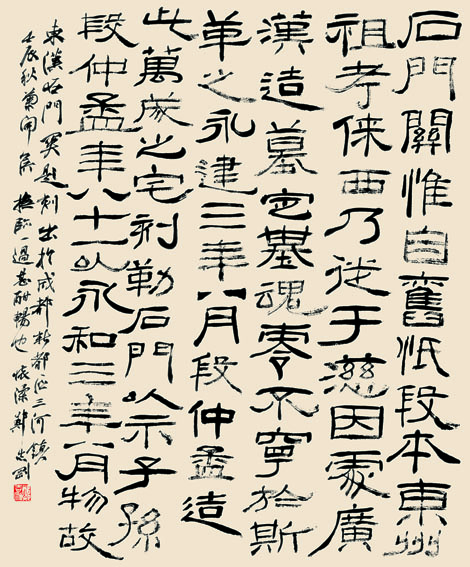 石門關惟自舊忯段本東州
祖考倈西乃徙于慈因處廣
漢造墓定基魂零不寧於斯
革之永建三年八月段仲孟造
此萬歲之宅刻勒石門以示子孫
段仲孟年八十一以永和三年八月物故
東漢石門關題刻出於成都新都區三河鎮
壬辰秋蘭開 臨過甚酣暢也 鄭